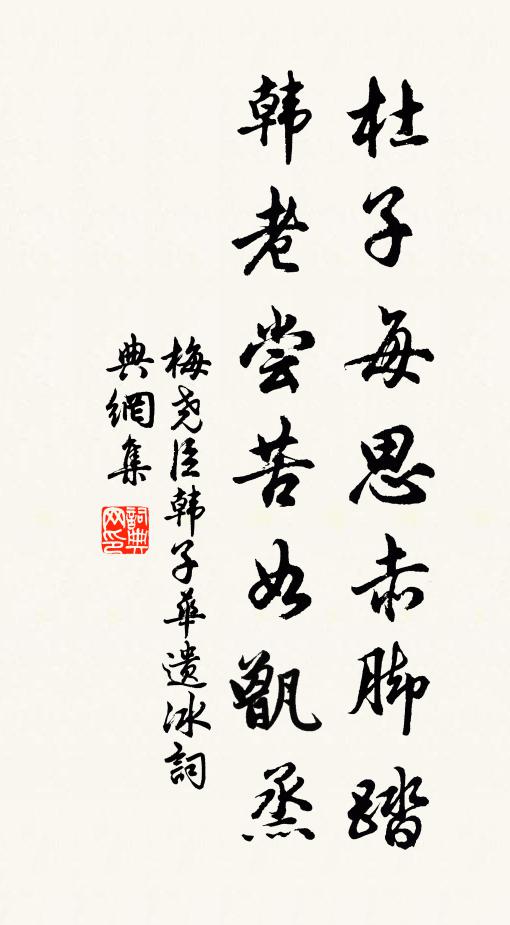 杜子每思赤脚踏
韩老尝苦如甑烝
梅尧臣韩子华遗冰詞
典網集
詞典网印